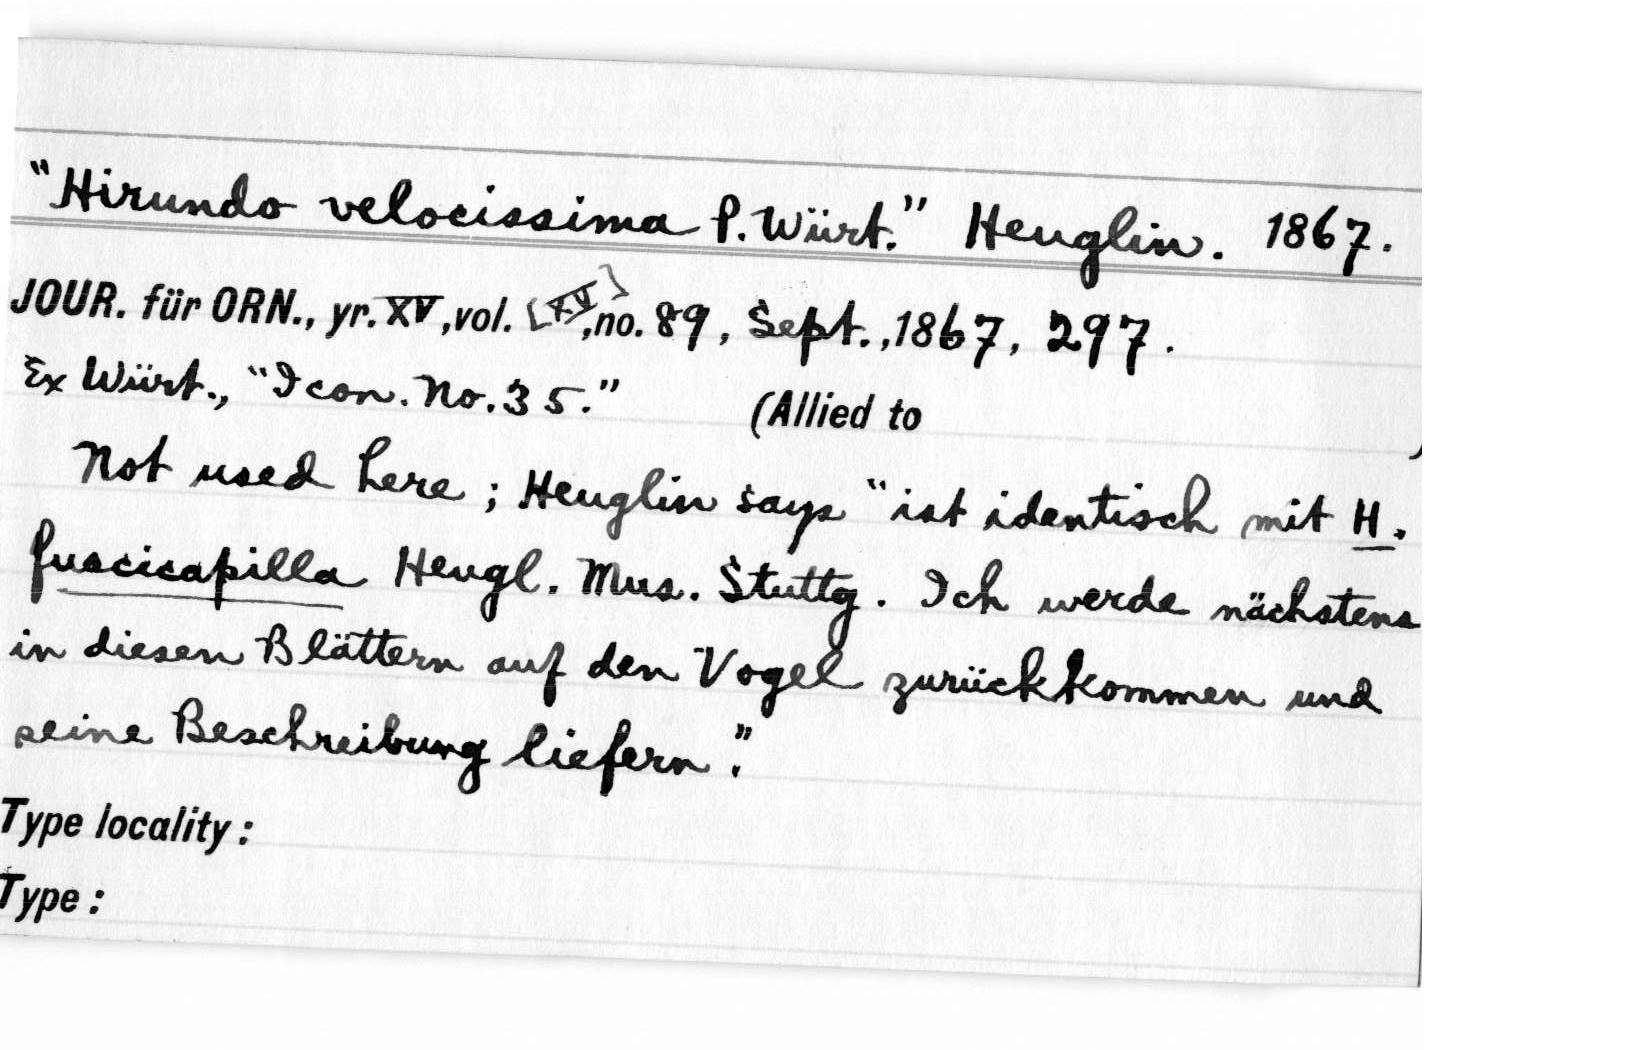 "Hirundo velocissima P. Würt." Heuglin. 1867.
JOUR. für ORN., yr. XV, vol. [XV], no. 89, Sept., 1867, 297.
Ex Würt., "Icon. No. 35." (Allied to )
Not used here; Heuglin says "ist identisch mit H.
fuscicapilla Heugl. Mus. Stuttg. Ich werde nächstens
in diesen Blättern auf den Vogel zurückkommen und
seine Beschreibung liefern."
Type locality:
Type: